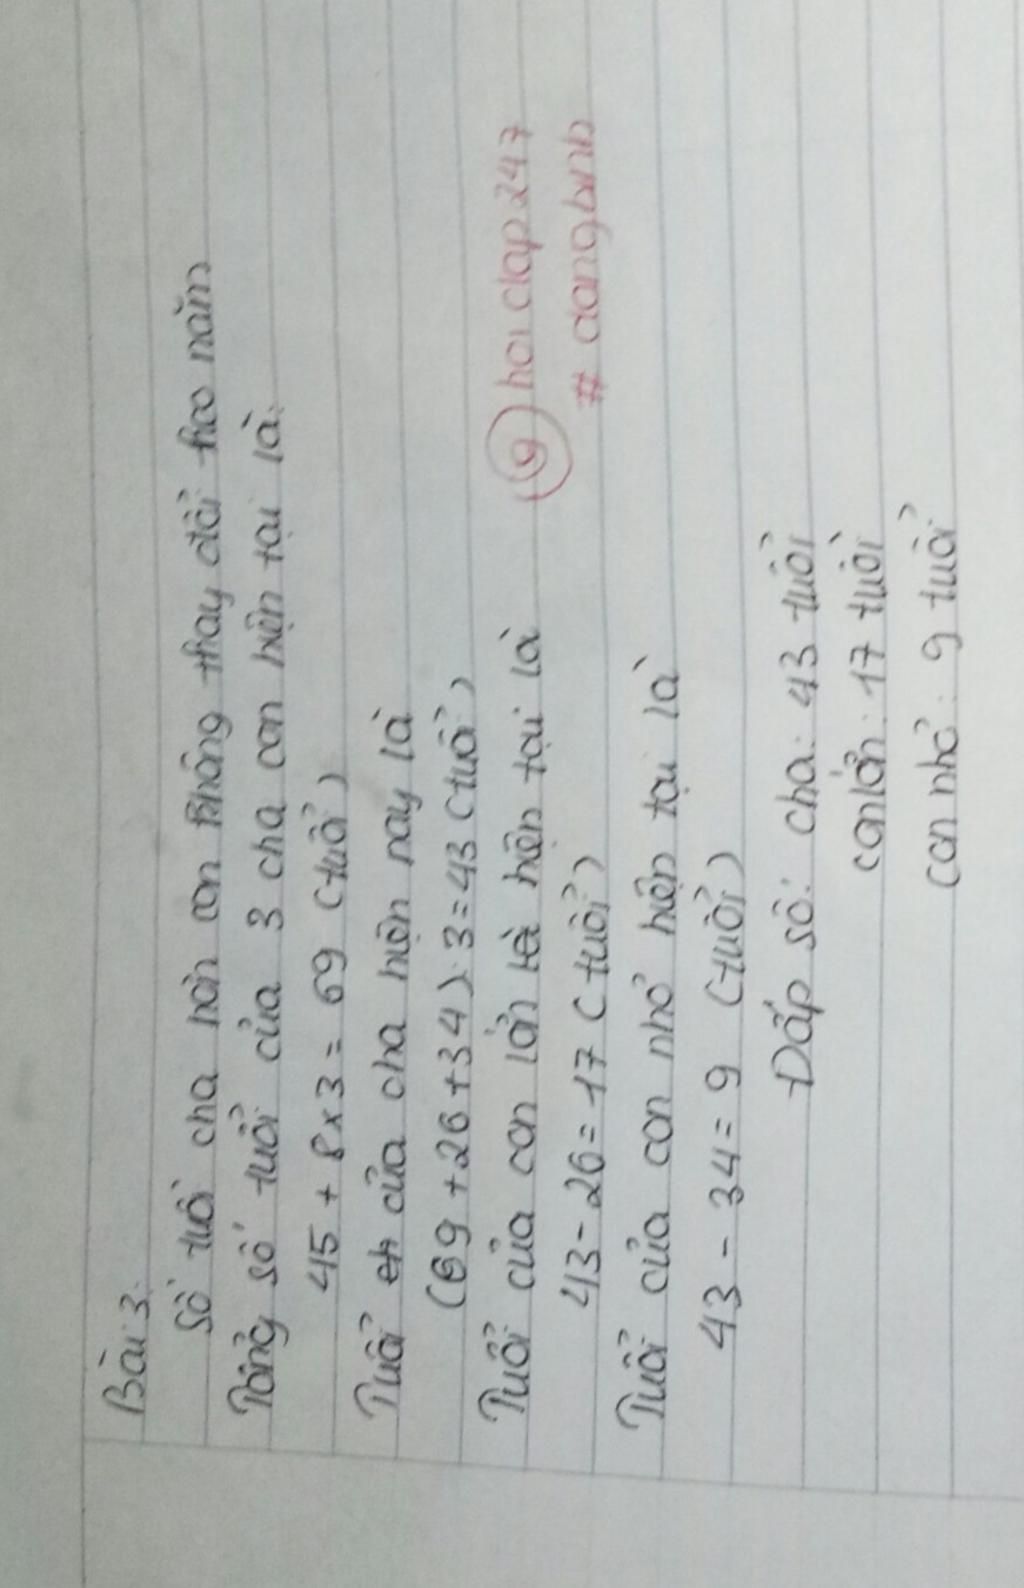 Bài 3:
Số tuổi cha hơn con không thay đổi theo năm
Tổng số tuổi của 3 cha con hiện tại là:
45 + 8 x 3 = 69 (tuổi)
Tuổi của cha hiện nay là
(69 + 26 + 34) : 3 = 43 (tuổi)
Tuổi của con lớn hiện tại là
hoidap247
43 - 26 = 17 (tuổi)
# dangbinh
Tuổi của con nhỏ hiện tại là
43 - 34 = 9 (tuổi)
Đáp số: cha: 43 tuổi
con lớn: 17 tuổi
con nhỏ: 9 tuổi